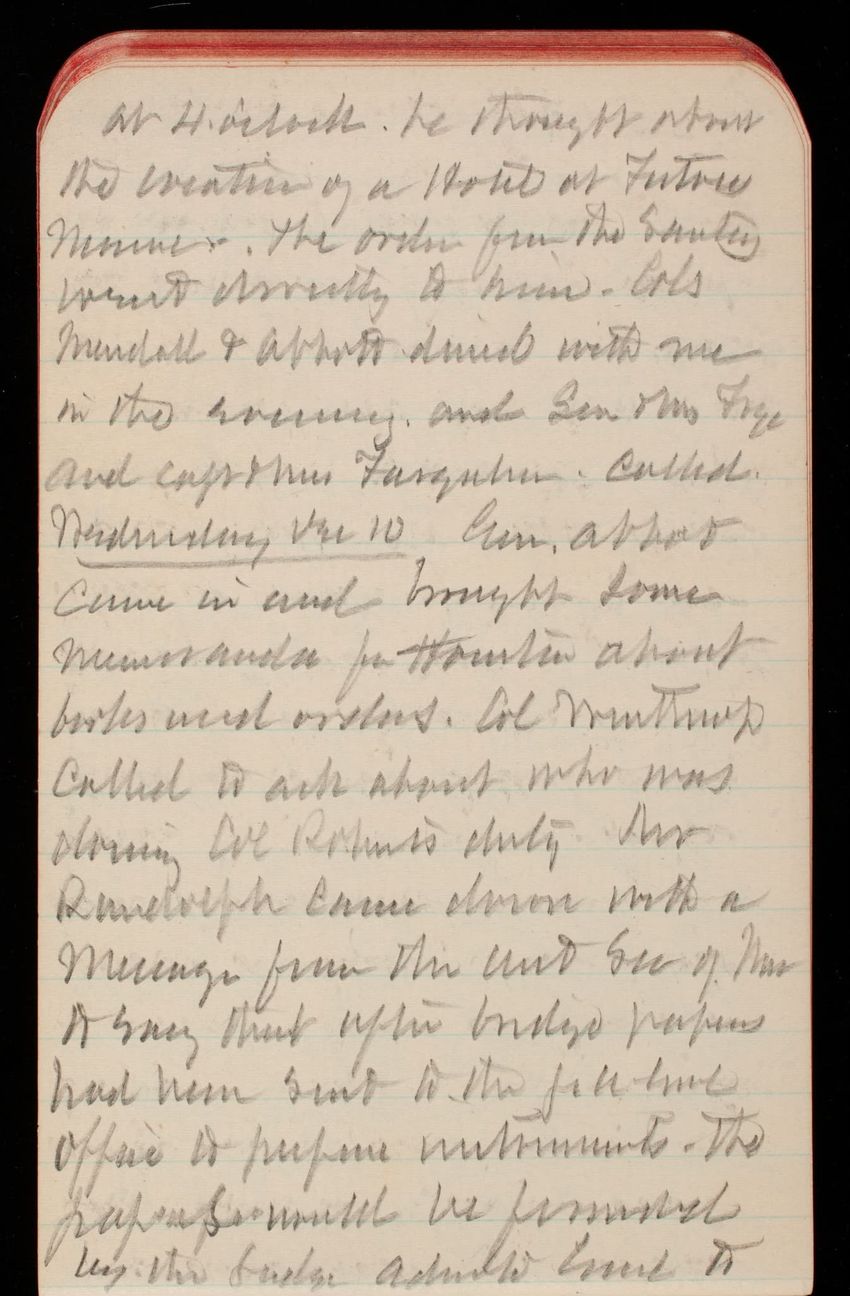 at 4 o'clock. he thought about
the erection of a Hotel at Fortress
Monroe. The order from the Secty
went directly to him. Cols
Mendell & Abbott dined with me
in the evening. and Gen & Mrs Frye
and Capt & Mrs Farquhar. Called.
Wednesday Dec 10 Gen. Abbot
came in and brought some
memoranda for Houston about
books and orders. Col Winthrop
Called to ask about who was
doing Col Roberts duty Mr
Randolph came down with a
Message from the Sec of War
to say that after bridge papers
had been sent to the
office to prepare instruments. The
papers would be forwarded
by the Judge Advocate Genl to